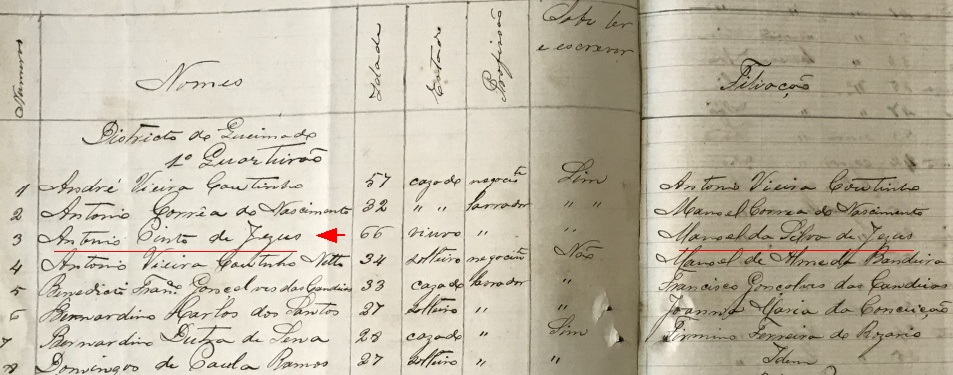 Numeros Nomes Idade Estado Profissão Sabe ler e escrever Filiação
Districto de Queimado
1º Quarteirão
1 André Vieira Coutinho 57 cazado negocite Sim Antonio Vieira Coutinho
2 Antonio Corrêa do Nascimento 32 " " lavrador " " Manoel Correa do Nascimento
3 Antonio Pinto de Jezus 66 viuvo " " Manoel da Silva de Jezus
4 Antonio Vieira Coutinho Netto 34 solteiro negocite Não Manoel de Almeda Bandeira
5 Benedicto Franco Gonçalves das Candeias 33 cazado lavrador " Francisco Gonçalves das Candeias
6 Bernardino Martos dos Santos 27 solteiro " " Joanna Maria da Conceição
7 Bernardino Dutra de Sena 28 cazado " Sim Firmino Ferreira do Rozario
8 Domingos de Paula Ramos 27 solteiro " " Idem